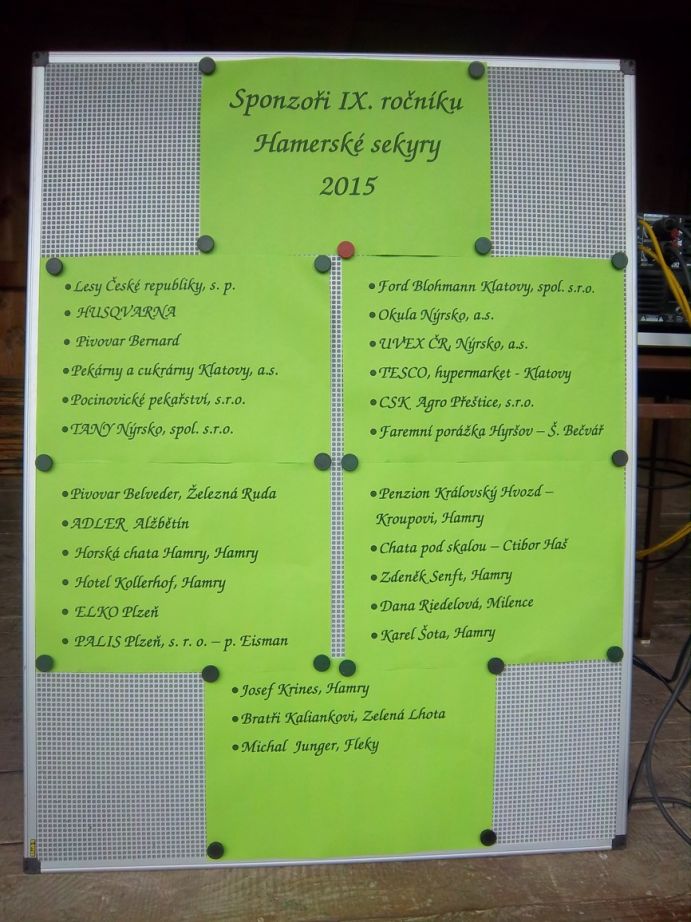 Sponzoři IX. ročníku
Hamerské sekyry
2015
• Lesy České republiky, s. p.
• HUSQVARNA
• Pivovar Bernard
• Pekárny a cukrárny Klatovy, a.s.
• Pocinovické pekařství, s.r.o.
• TANY Nýrsko, spol. s.r.o.
• Ford Blohmann Klatovy, spol. s.r.o.
• Okula Nýrsko, a.s.
• UVEX ČR, Nýrsko, a.s.
• TESCO, hypermarket - Klatovy
• CSK Agro Přeštice, s.r.o.
• Faremní porážka Hyršov – Š. Bečvář
• Pivovar Belveder, Železná Ruda
• ADLER Alžbětín
• Horská chata Hamry, Hamry
• Hotel Kollerhof, Hamry
• ELKO Plzeň
• PALIS Plzeň, s. r. o. – p. Eisman
• Penzion Královský Hvozd –
Kroupovi, Hamry
• Chata pod skalou – Ctibor Haš
• Zdeněk Senft, Hamry
• Dana Riedelová, Milence
• Karel Šota, Hamry
• Josef Krines, Hamry
• Bratři Kaliankovi, Zelená Lhota
• Michal Junger, Fleky